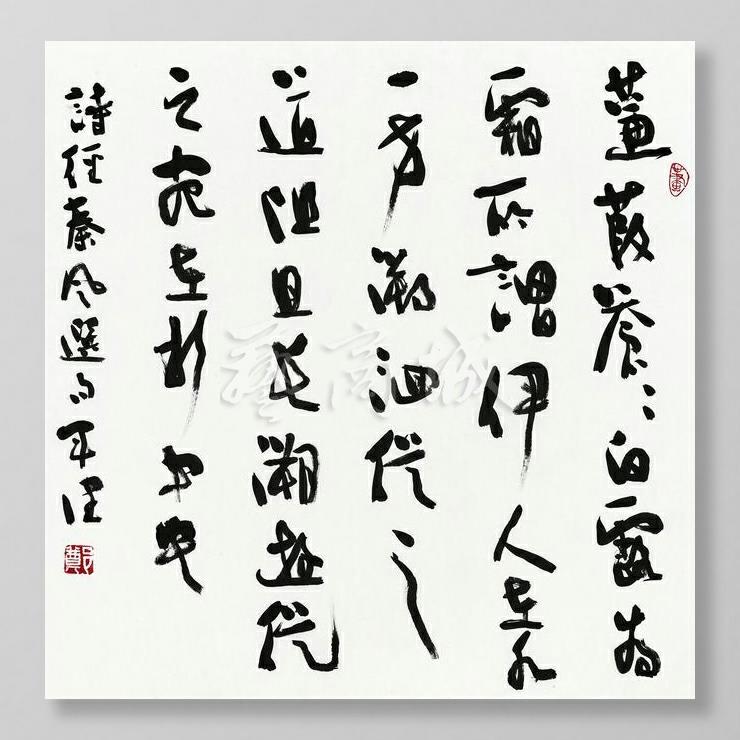 蒹葭蒼〻白露為
霜所謂伊人在水
一方溯洄從之
道阻且長溯游從
之宛在水中央
詩經秦風選句
藝商城